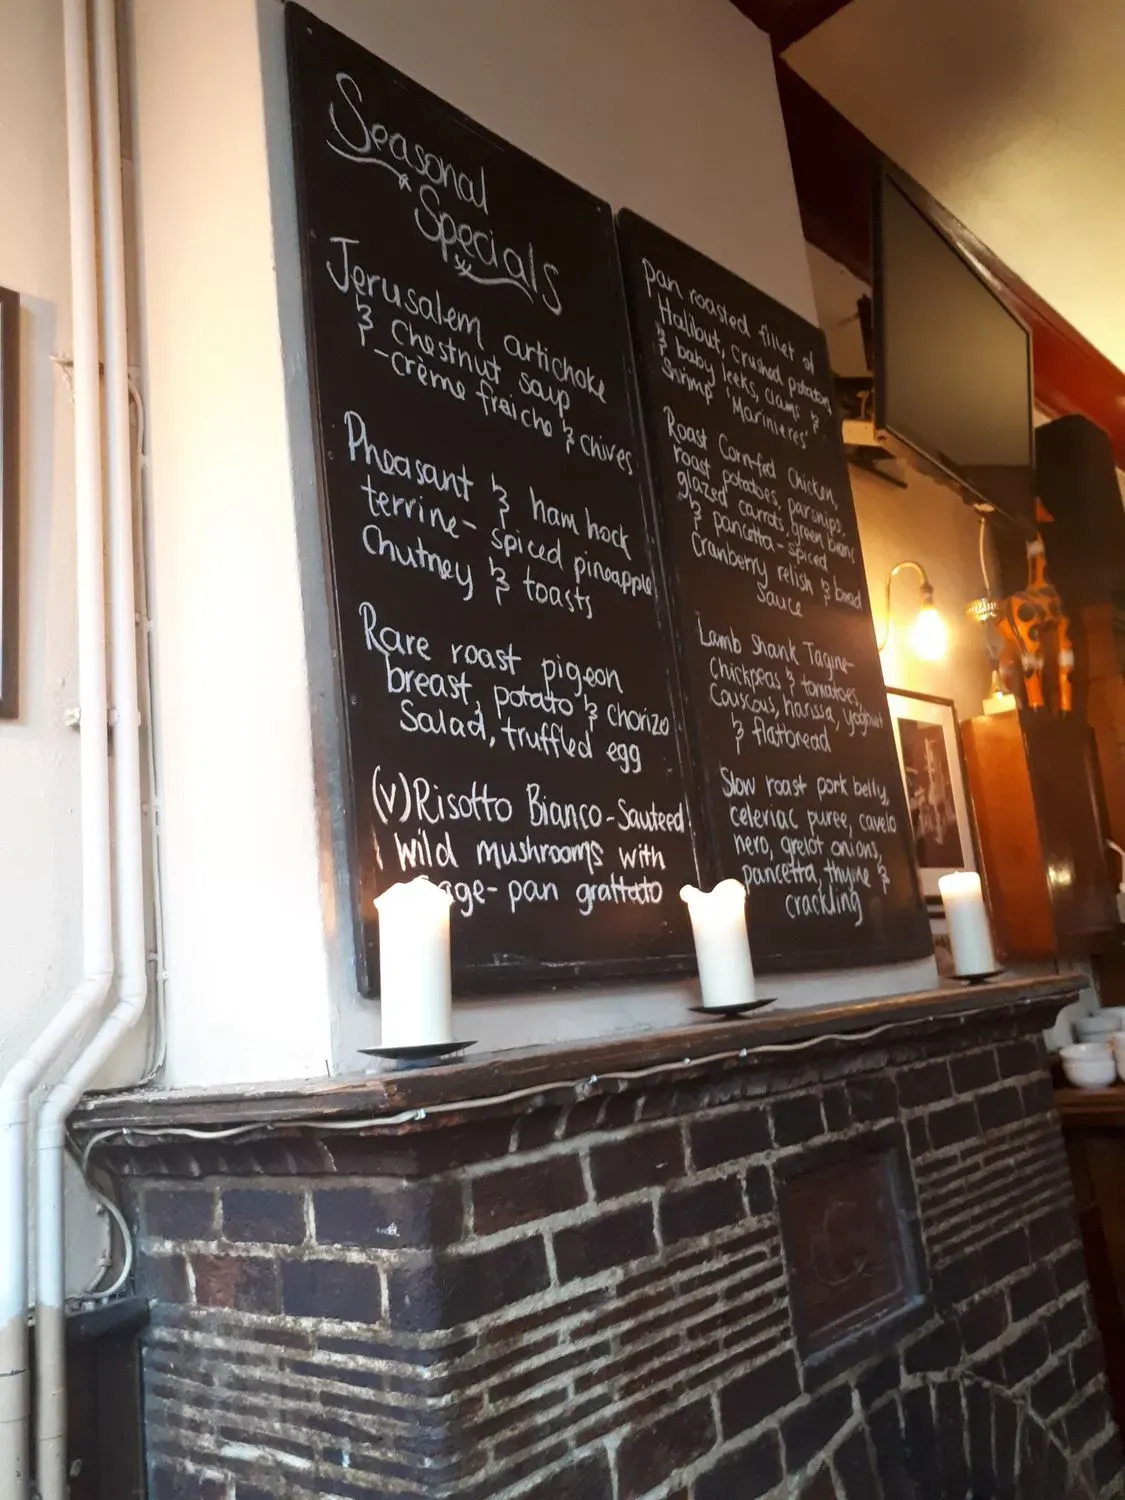 Seasonal
Specials
Jerusalem artichoke
& Chestnut soup
-crème fraiche & chives
Pheasant & ham hock
terrine- spiced pineapple
Chutney & toasts
Rare roast pigeon
breast, potato & chorizo
Salad, truffled egg
(v) Risotto Bianco-Sauteed
wild mushrooms with
age- pan grattato
pan roasted fillet of
Halibut, crushed potatoes,
& baby leeks, clams &
Shrimp 'Marinieres'
Roast Corn-fed Chicken,
roast potatoes, parsnips,
glazed carrots, green beans,
& pancetta-spiced
Cranberry relish & bread
Sauce
Lamb Shank Tagine-
Chickpeas & tomatoes,
Couscous, harissa, yoghurt
& flatbread
Slow roast pork belly,
celeriac puree, cavelo
nero, grelot onions,
pancetta thyme &
crackling